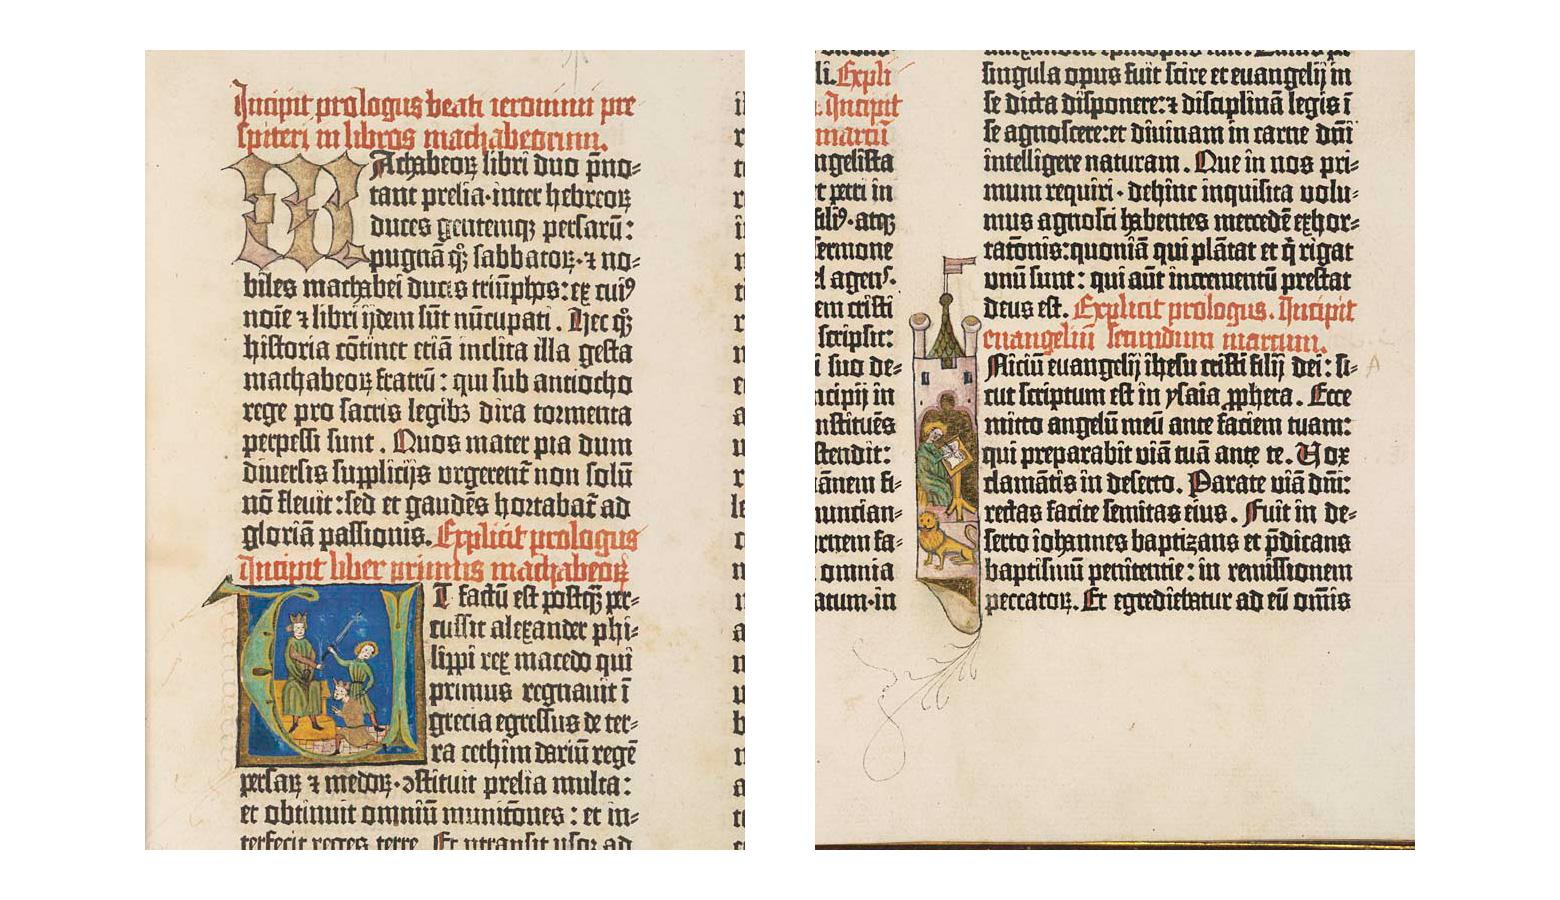 Incipit prologus beati ieronimi pre
spiteri in libros machabeorum.
MAchabeoꝝ libri duo p̄no-
tant prelia·inter hebreoꝝ
duces gentemqꝫ persarū:
pugnā qꝫ sabbatoꝝ·⁊ no-
biles machabei ducis triūphos: ex cuiꝰ
noīe ⁊ libri ijdem sūt nūcupati. Hec qꝫ
historia cōtinet etiā inclita illa gesta
machabeoꝝ fratrū: qui sub antiocho
rege pro sacris legibꝫ dira tormenta
perpessi sunt. Quos mater pia dum
diuersis supplicijs urgerent̄ non solū
nō fleuit: sed et gaudēs hortabat̄ ad
gloriā passionis. Explicit prologus
Incipit liber primus machabeoꝝ
ET factū est postqꝫ per-
cussit alexander phi-
lippi rex macedo qui
primus regnauit ī
grecia egressus de ter-
ra cethim dariū regē
persaꝝ ⁊ medoꝝ·ↄstituit prelia multa:
et obtinuit omniū munitōnes: et in-
terfecit reges terre. Et ptransit usqꝫ ad
li. Expli
. Incipit
marcū
ngelista
t petri in
filiꝰ·atqꝫ
sermone
el agens·
em cristi
scripsit:
i suo de-
ncipij in
nstituēs
stendit:
iānem fi-
nuncian-
rnem fa-
omnia
atum·in
singula opus fuit scire et euangelij in
se dicta disponere: ⁊ disciplinā legis ī
se agnoscere: et diuinam in carne dn̄i
intelligere naturam. Que in nos pri-
mum requiri· dehinc inquisita volu-
mus agnosci habentes mercedē exhor-
tatōnis: quoniā qui plātat et q̄ rigat
unū sunt: qui aūt incrementū prestat
deus est. Explicit prologus. Incipit
euangeliū secundum marcum.
INiciū euangelij ihesu cristi filij dei: si-
cut scriptum est in ysaia ꝓpheta. Ecce
mitto angelū meū ante faciem tuam:
qui preparabit viā tuā ante te. Vox
clamātis in deserto. Parate viā dn̄i:
rectas facite semitas eius. Fuit in de-
serto iohannes baptizans et p̄dicans
baptismū penitentie: in remissionem
peccatoꝝ. Et egrediebatur ad eū om̄is